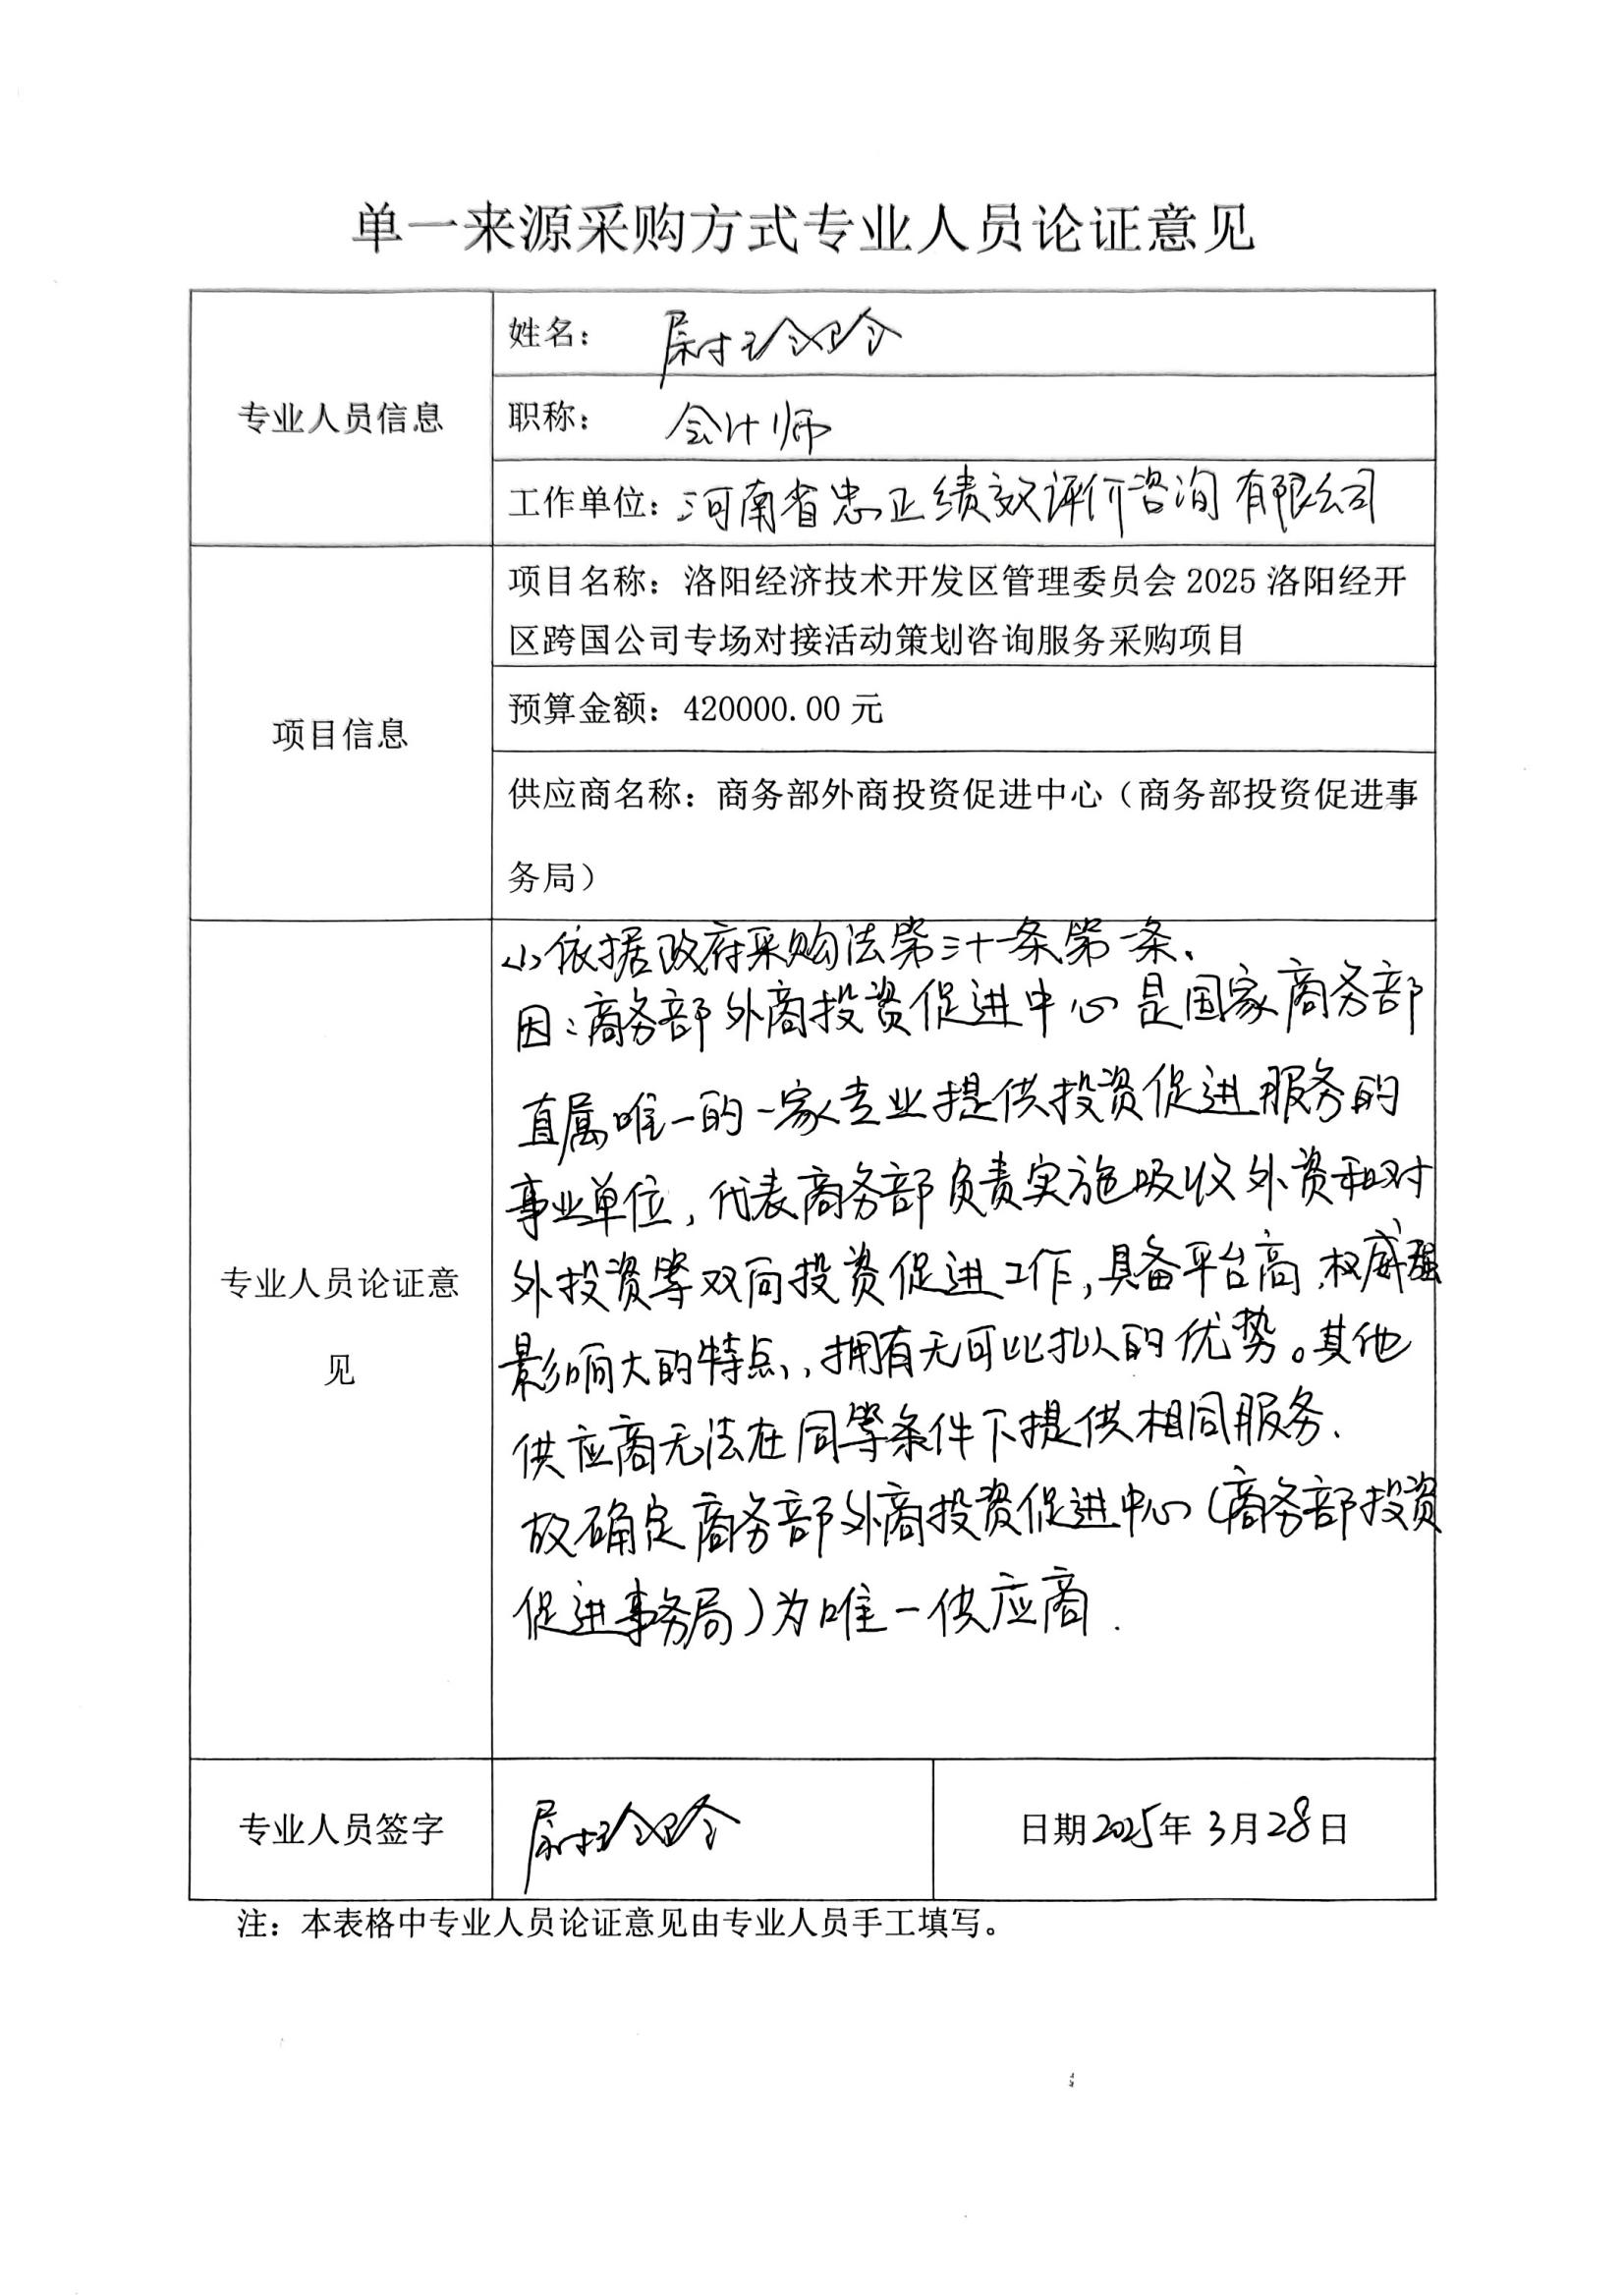 单一来源采购方式专业人员论证意见
专业人员信息
姓名：尉玲玲
职称：会计师
工作单位：河南省忠正绩效评价咨询有限公司
项目信息
项目名称：洛阳经济技术开发区管理委员会2025洛阳经开
区跨国公司专场对接活动策划咨询服务采购项目
预算金额：420000.00元
供应商名称：商务部外商投资促进中心（商务部投资促进事
务局）
专业人员论证意
见
依据政府采购法第三十一条第一条、
因：商务部外商投资促进中心是国家商务部
直属唯一的一家专业提供投资促进服务的
事业单位，代表商务部负责实施吸收外资和对
外投资等双向投资促进工作，具备平台高、权威强
影响大的特点，拥有无可比拟的优势。其他
供应商无法在同等条件下提供相同服务、
故确定商务部外商投资促进中心（商务部投资
促进事务局）为唯一供应商.
专业人员签字
尉玲玲
日期2025年3月28日
注：本表格中专业人员论证意见由专业人员手工填写。